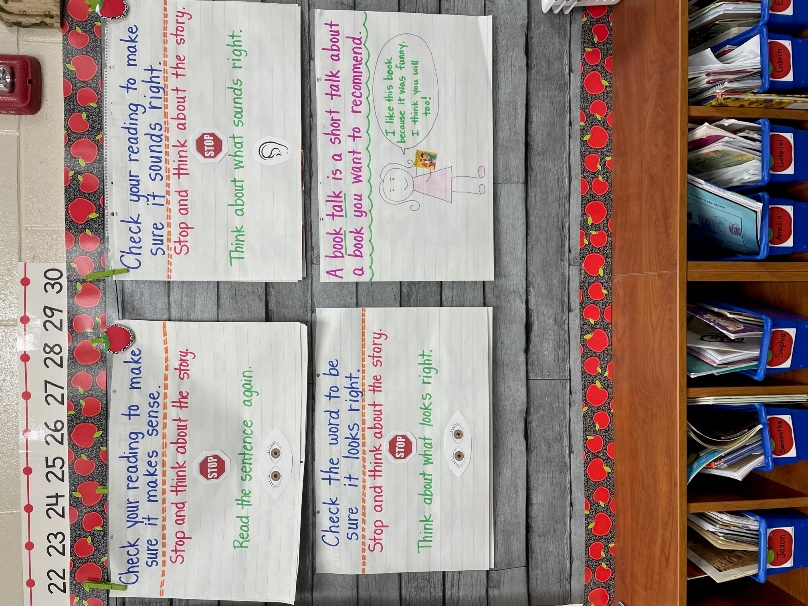 22 23 24 25 26 27 28 29 30
Check your reading to make
sure it makes sense.
Stop and think about the story.
STOP
Read the sentence again.
Check your reading to make
sure it sounds right.
Stop and think about the story.
STOP
Think about what sounds right.
Check the word to be
sure it looks right.
Stop and think about the story.
STOP
Think about what looks right.
A book talk is a short talk about
a book you want to recommend.
I like this book
because it was funny.
I think you will
too!
Jaxon
Samantha
Sophia
Amelia
Gabriel
Gavin